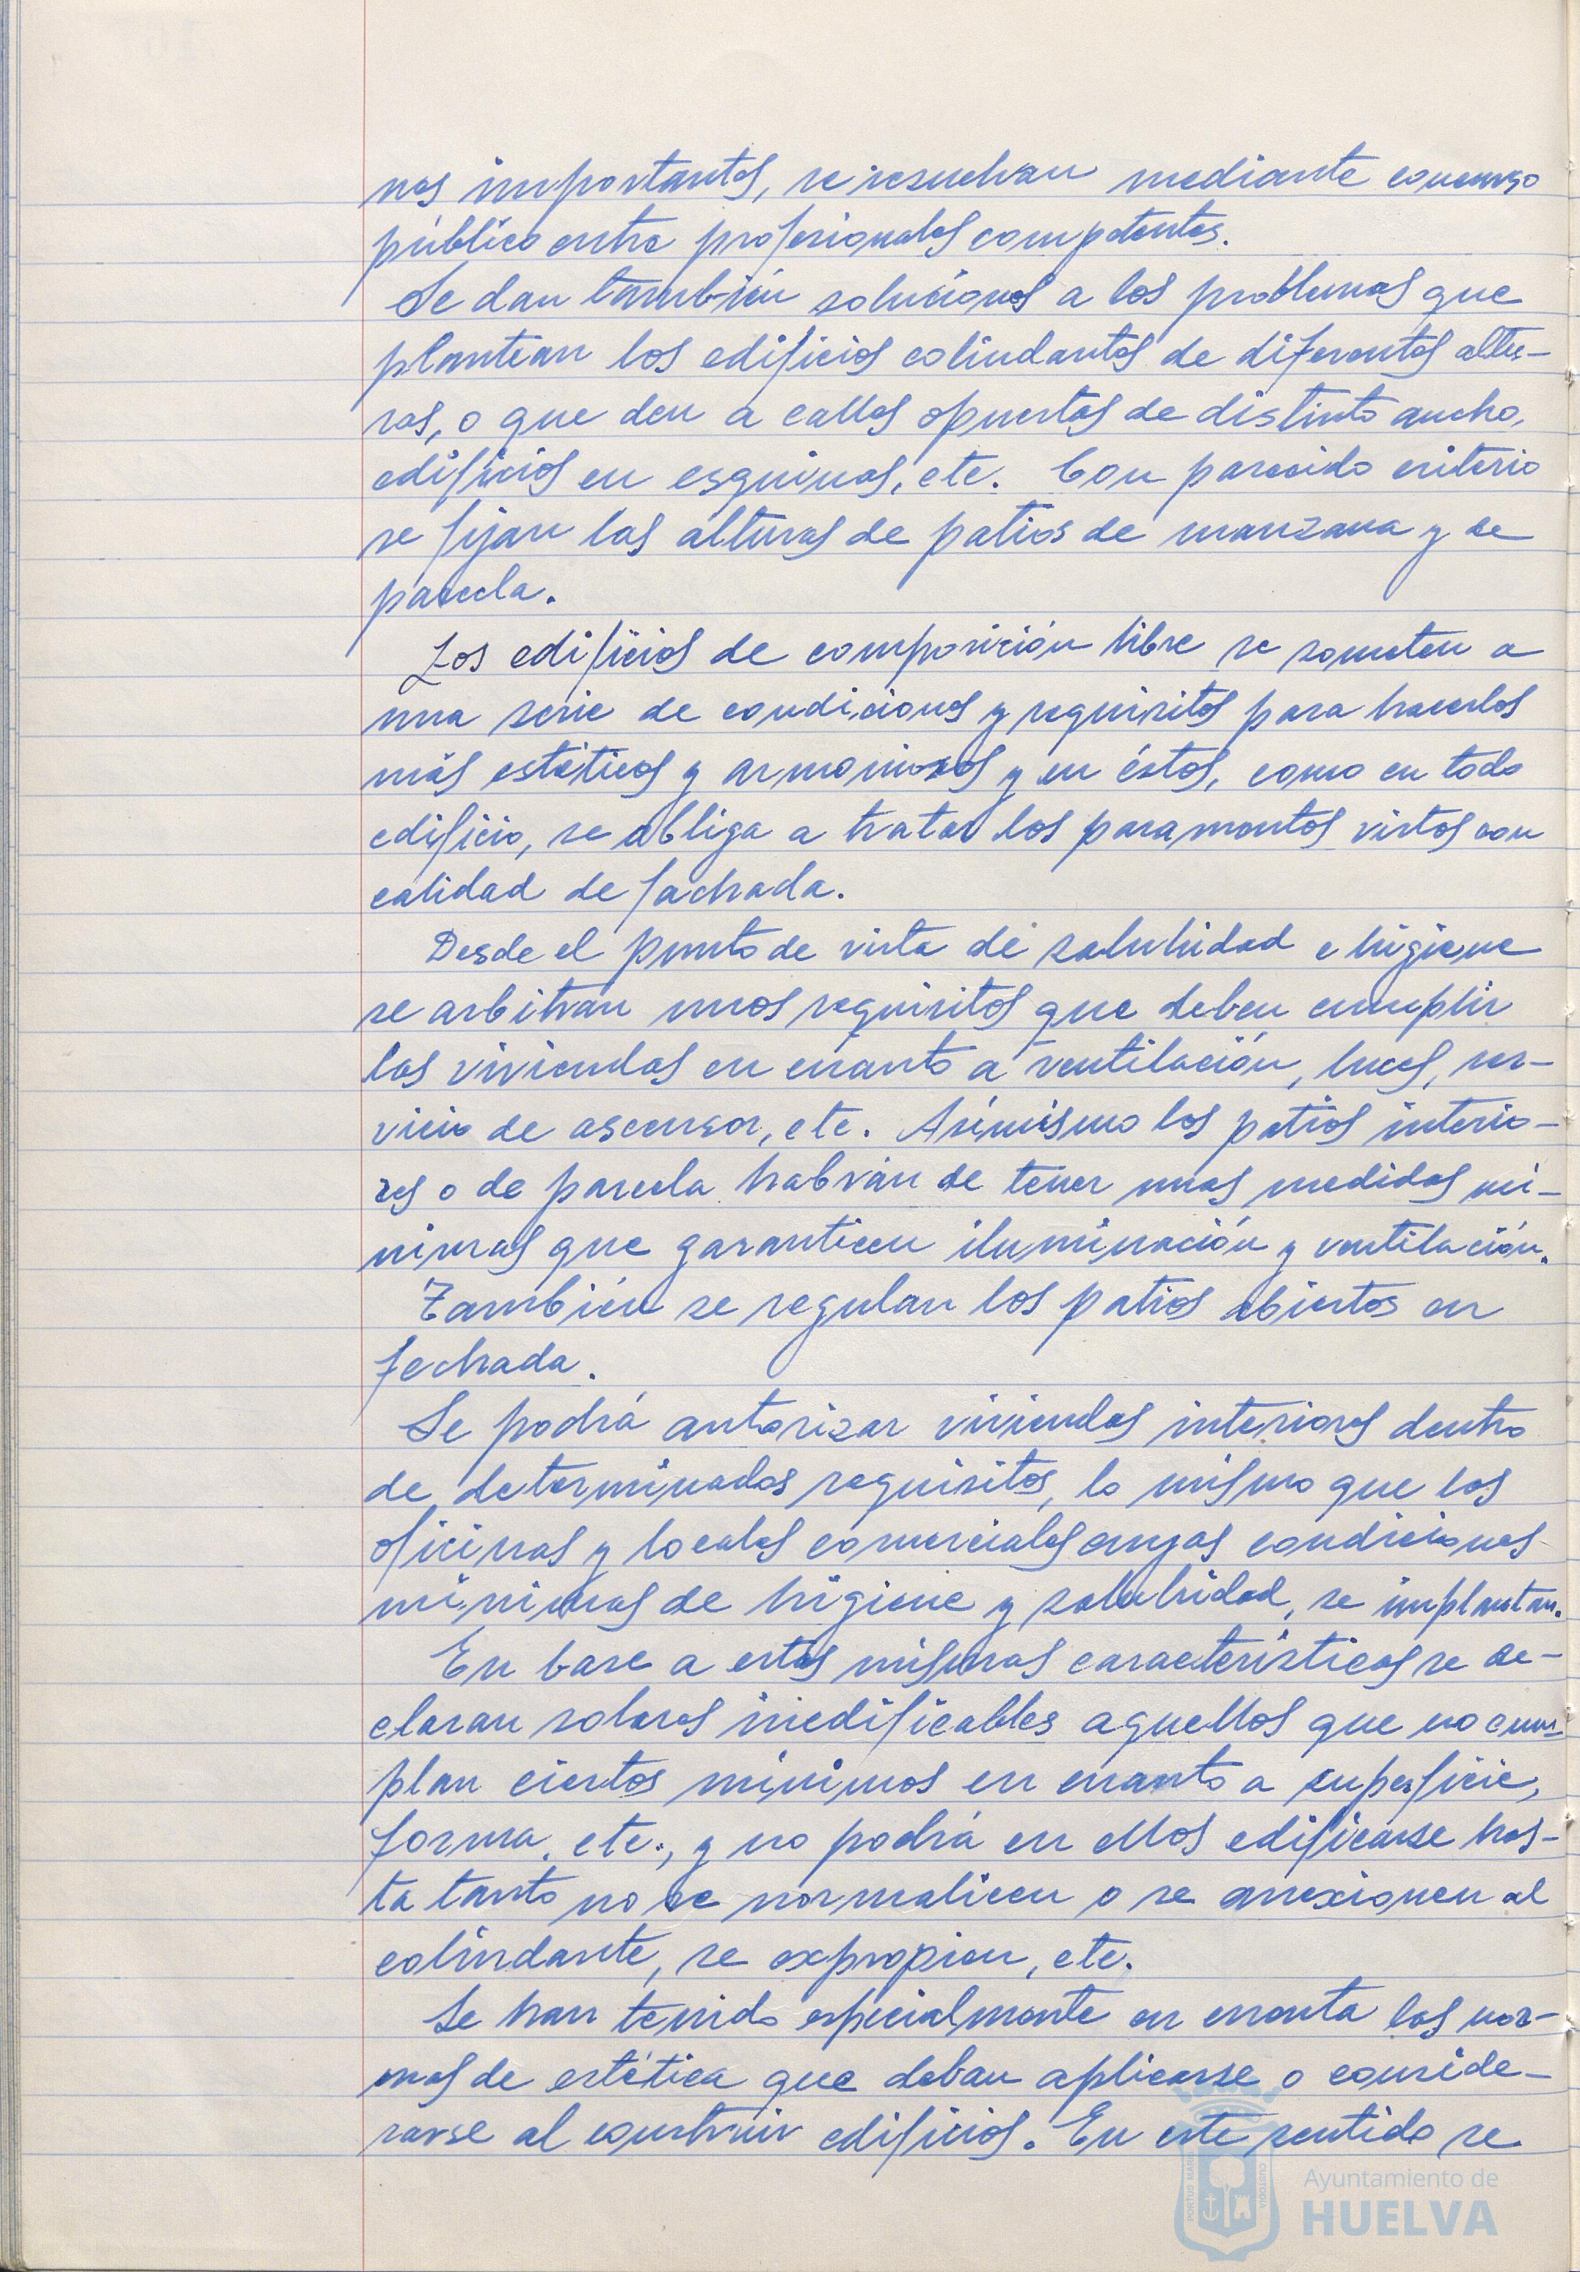 nas importantes, se resuelvan mediante concurso
público entre profesionales competentes.
Se dan también soluciones a los problemas que
plantean los edificios colindantes de diferentes altu-
ras, o que den a calles opuestas de distinto ancho,
edificios en esquinas, etc. Con parecido criterio
se fijan las alturas de patios de manzana y de
parcela.
Los edificios de composición libre se someten a
una serie de condiciones y requisitos para hacerlos
más estéticos y armoniosos y en éstos, como en todo
edificio, se obliga a tratar los paramentos vistos con
calidad de fachada.
Desde el punto de vista de salubridad e higiene
se arbitran unos requisitos que deben cumplir
las viviendas en cuanto a ventilación, luces, ser-
vicio de ascensor, etc. Asimismo los patios interio-
res o de parcela habrán de tener unas medidas mí-
nimas que garanticen iluminación y ventilación.
También se regulan los patios abiertos en
fachada.
Se podrá autorizar viviendas interiores dentro
de determinados requisitos, lo mismo que las
oficinas y locales comerciales cuyas condiciones
mínimas de higiene y salubridad, se implantan.
En base a estas mismas características se de-
claran solares inedificables aquellos que no cum-
plan ciertos mínimos en cuanto a superficie,
forma, etc., y no podrá en ellos edificarse has-
ta tanto no se normalicen o se anexionen al
colindante, se expropien, etc.
Se han tenido especialmente en cuenta las nor-
mas de estética que deban aplicarse o conside-
rarse al construir edificios. En este sentido se
PORTUS MARIS
CUSTODIA
Ayuntamiento de
HUELVA